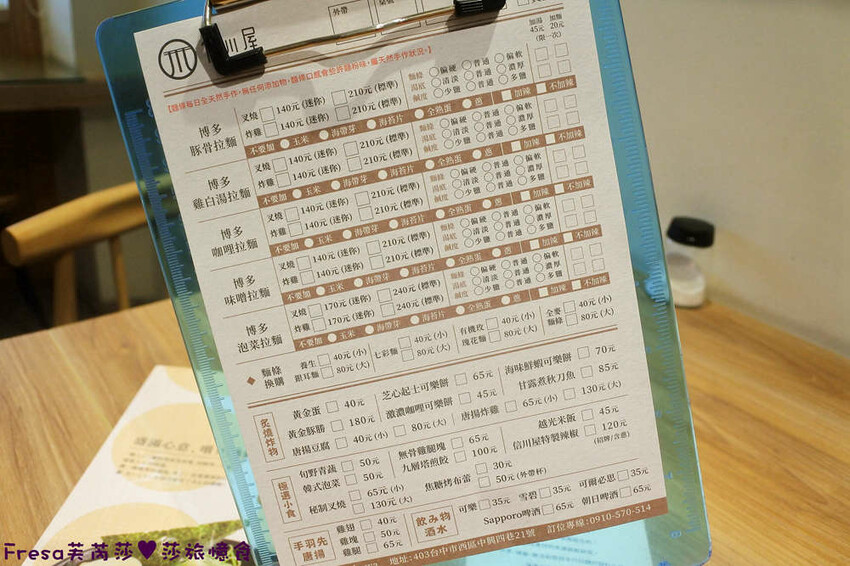 外帶
川屋
加湯 加麵
45元 20元
(限一次)
【麵條每日全天然手作,無任何添加物,麵條口感會些許麵粉味,屬天然手作狀況。】
博多
豚骨拉麵
叉燒 140元 (迷你) 210元 (標準)
炸雞 140元 (迷你) 210元 (標準)
麵條 偏硬 普通 偏軟
湯底 清淡 普通 濃厚
鹹度 少鹽 普通 多鹽
不要加 玉米 海帶芽 海苔片 全熟蛋 蔥 加辣 不加辣
博多
雞白湯拉麵
叉燒 140元 (迷你) 210元 (標準)
炸雞 140元 (迷你) 210元 (標準)
麵條 偏硬 普通 偏軟
湯底 清淡 普通 濃厚
鹹度 少鹽 普通 多鹽
不要加 玉米 海帶芽 海苔片 全熟蛋 蔥 加辣 不加辣
博多
咖哩拉麵
叉燒 140元 (迷你) 210元 (標準)
炸雞 140元 (迷你) 210元 (標準)
麵條 偏硬 普通 偏軟
湯底 清淡 普通 濃厚
鹹度 少鹽 普通 多鹽
不要加 玉米 海帶芽 海苔片 全熟蛋 蔥 加辣 不加辣
博多
味噌拉麵
叉燒 140元 (迷你) 210元 (標準)
炸雞 140元 (迷你) 210元 (標準)
麵條 偏硬 普通 偏軟
湯底 清淡 普通 濃厚
鹹度 少鹽 普通 多鹽
不要加 玉米 海帶芽 海苔片 全熟蛋 蔥 加辣 不加辣
博多
泡菜拉麵
叉燒 170元 (迷你) 240元 (標準)
炸雞 170元 (迷你) 240元 (標準)
麵條 偏硬 普通 偏軟
湯底 清淡 普通 濃厚
鹹度 少鹽 普通 多鹽
不要加 玉米 海帶芽 海苔片 全熟蛋 蔥 加辣 不加辣
麵條
換購
養生 40元 (小)
銀耳麵 80元 (大)
七彩麵 40元 (小)
80元 (大)
有機玫 40元 (小)
瑰花麵 80元 (大)
全麥 40元 (小)
麵條 80元 (大)
炙燒炸物
黃金蛋 40元
芝心起士可樂餅 65元
海味鮮蝦可樂餅 70元
黃金豚勝 180元
激濃咖哩可樂餅 45元
甘露煮秋刀魚 85元
唐揚豆腐 40元 (小) 80元 (大)
唐揚炸雞 65元 (小) 130元 (大)
極選小食
旬野青蔬 50元
無骨雞腿塊 65元
越光米飯 45元
韓式泡菜 50元
九層塔煎餃 100元
信川屋特製辣椒 120元
(招牌/含蔥)
秘制叉燒 65元 (小)
130元 (大)
焦糖烤布蕾 30元
50元 (外帶杯)
手羽先
唐揚
雞翅 40元
雞塊 50元
雞腿 65元
飲み物
酒水
可樂 35元 雪碧 35元 可爾必思 35元
Sapporo啤酒 65元 朝日啤酒 65元
地址:403台中市西區中興四巷21號 訂位專線:0910-570-514
Fresa芙芮莎♥莎旅憶食